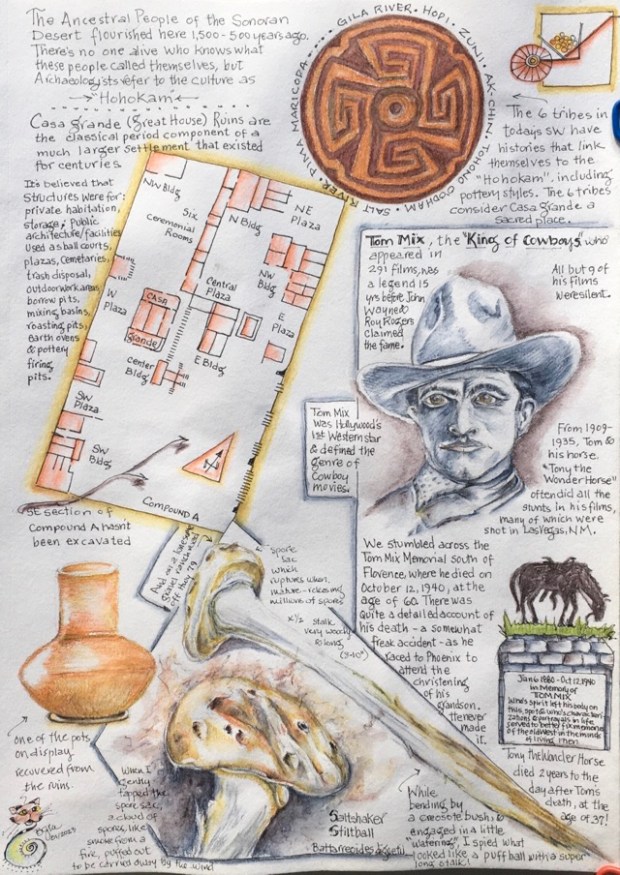 The Ancestral People of the Sonoran
Desert flourished here 1,500-500 years ago.
There's no one alive who knows what
these people called themselves, but
Archaeologists refer to the culture as
"Hohokam"
Casa Grande (Great House) Ruins are
the classical period component of a
much larger settlement that existed
for centuries.
GILA RIVER · HOPI · ZUNI · AK-CHIN · TOHONO OODHAM · SALT RIVER PIMA MARICOPA
The 6 tribes in
todays SW have
histories that link
themselves to the
"Hohokam", including
pottery styles. The 6 tribes
consider Casa Grande a
sacred place.
It's believed that
structures were for:
private habitation,
storage, Public
architecture/facilities
used as ball courts,
plazas, Cemetaries,
trash disposal,
outdoor work areas,
borrow pits,
mixing basins,
roasting pits,
earth ovens
& pottery
firing
pits.
NW Bldg
Six
Ceremonial
Rooms
N Bldg
NE
Plaza
NW
Bldg
Central
Plaza
W
Plaza
CASA
Grande
E
Plaza
E Bldg
Center
Bldg
SW
Plaza
SW
Bldg
N
COMPOUND A
SE section of
Compound A hasn't
been excavated
Tom Mix, the "King of Cowboys" who
appeared in
291 films, was
a legend 15
yrs before John
Wayne &
Roy Rogers
claimed
the fame.
All but 9 of
his films
were silent.
Tom Mix
was Hollywood's
1st Western star
& defined the
genre of
Cowboy
movies.
From 1909-
1935, Tom &
his horse
"Tony the
Wonder Horse"
often did all the
stunts in his films,
many of which were
shot in Las Vegas, NM.
We stumbled across the
Tom Mix Memorial south of
Florence, where he died on
October 12, 1940, at the
age of 60. There was
quite a detailed account of
his death - a somewhat
freak accident - as he
raced to Phoenix to
attend the
christening
of his
grandson.
He never
made
it.
Jan 6 1880 - Oct 12 1940
In Memory of
TOM MIX
Who's spirit left his body on
this spot & who's characteri
zations & portrayals in life
served to better fix memories
of the old west in the minds
of living men.
Tony the Wonder Horse
died 2 years to the
day after Tom's
death, at the
age of 37!
off Hwy 79
spore
sac
which
ruptures when
mature - releasing
millions of spores
x 1/2
stalk
very woody
& long
one of the pots
on display
recovered from
the ruins.
When I
gently
tapped the
spore sac,
a cloud of
spores, like
smoke from a
fire, puffed out
to be carried away by the wind
Saltshaker
Stiltball
While
bending by
a creosote bush, &
engaged in a little
"watering", I spied what
looked like a puffball with a super
long stalk!